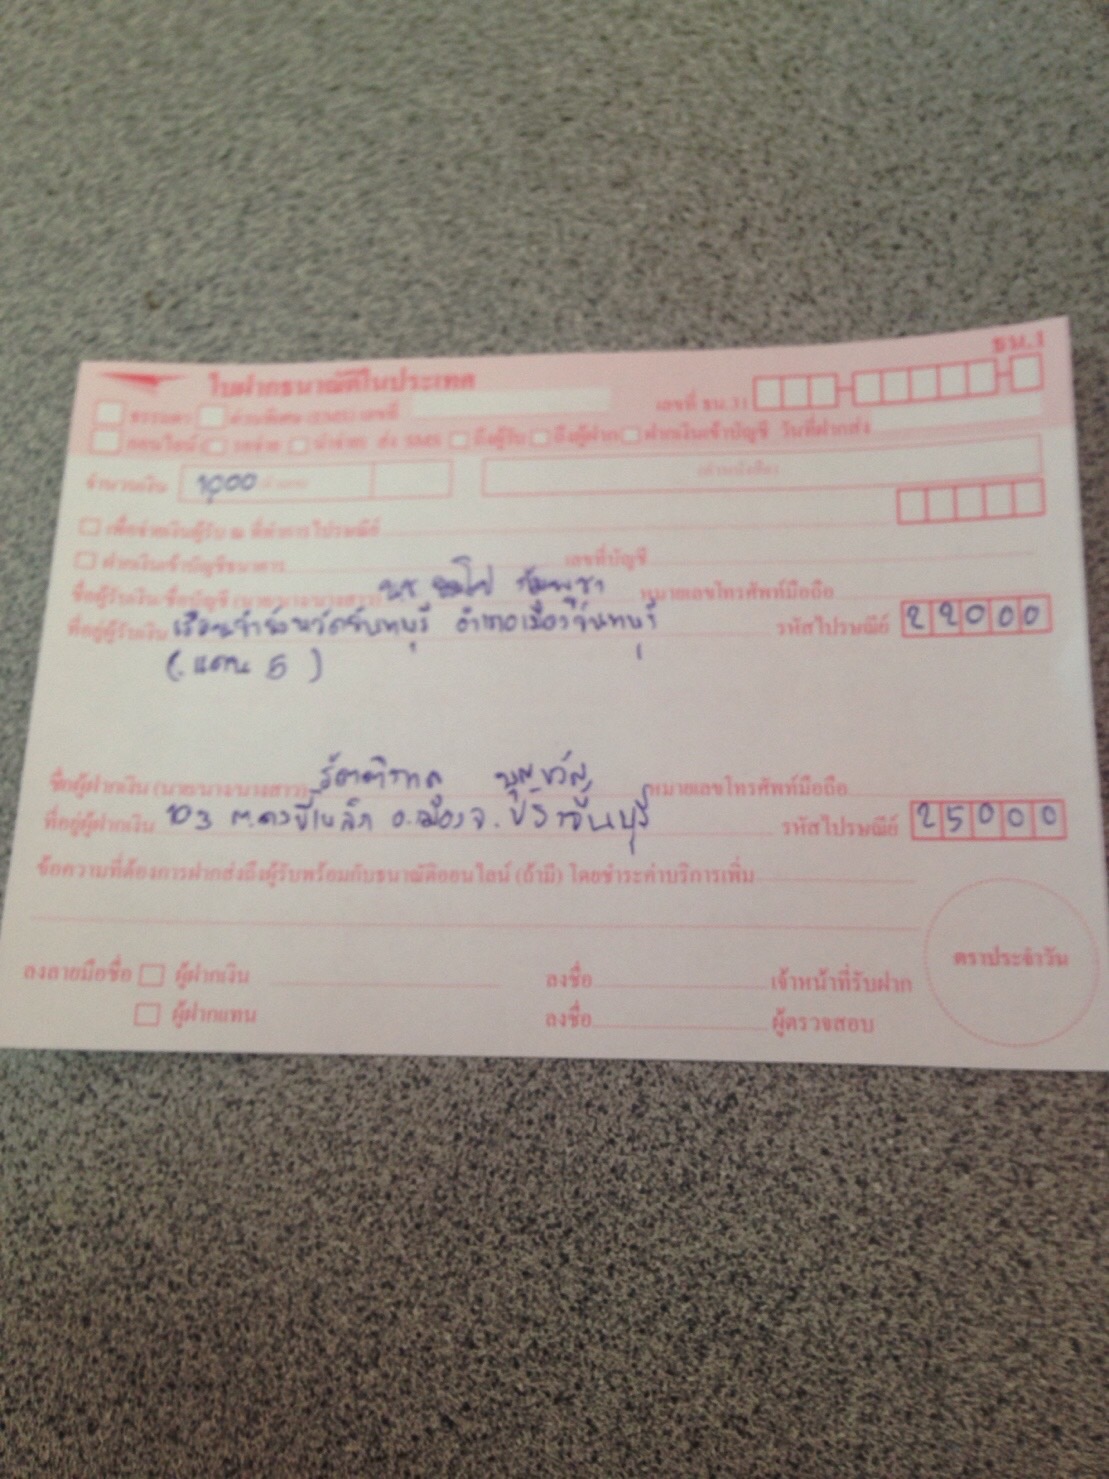 ธน.1
ใบฝากธนาณัติในประเทศ
ธรรมดา ด่วนพิเศษ (EMS) เลขที่ เลขที่ ธน.31
ออนไลน์ รอจ่าย นำจ่าย ส่ง SMS ถึงผู้รับ ถึงผู้ฝาก ฝากเงินเข้าบัญชี วันที่ฝากส่ง
จำนวนเงิน 1,000 (ตัวหนังสือ)
เพื่อจ่ายเงินผู้รับ ณ ที่ทำการไปรษณีย์
ฝากเงินเข้าบัญชีธนาคาร เลขที่บัญชี
ชื่อผู้รับเงิน/ชื่อบัญชี (นาย/นาง/นางสาว) หมายเลขโทรศัพท์มือถือ
ที่อยู่ผู้รับเงิน เรือนจำจังหวัดจันทบุรี อำเภอเมืองจันทบุรี รหัสไปรษณีย์ 22000
(แดน 5)
ชื่อผู้ฝากเงิน (นาย/นาง/นางสาว) บุญขวัญ หมายเลขโทรศัพท์มือถือ
ที่อยู่ผู้ฝากเงิน 103 ต.ดงขี้เหล็ก อ.เมือง จ.ปราจีนบุรี รหัสไปรษณีย์ 25000
ข้อความที่ต้องการฝากส่งถึงผู้รับพร้อมกับธนาณัติออนไลน์ (ถ้ามี) โดยชำระค่าบริการเพิ่ม
ตราประจำวัน
ลงลายมือชื่อ ผู้ฝากเงิน ลงชื่อ เจ้าหน้าที่รับฝาก
ผู้ฝากแทน ลงชื่อ ผู้ตรวจสอบ